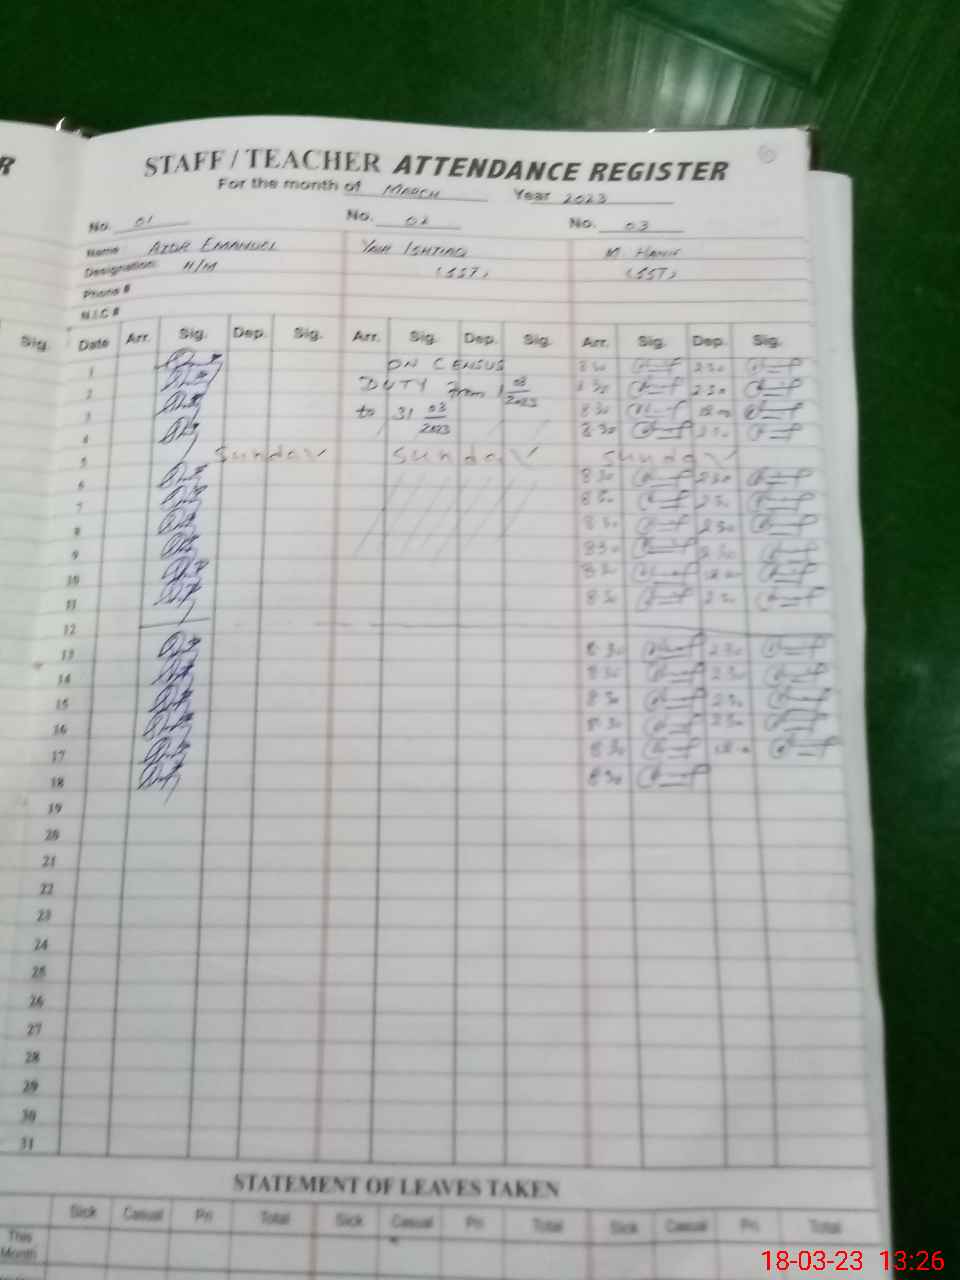 R
STAFF / TEACHER ATTENDANCE REGISTER
For the month of MARCH Year 2023
No. 01 No. 02 No. 03
Name AZOR EMANUEL YAIR ISHTIAQ M HANIF
Designation: H/M (SST) (SST)
Phone #
N.I.C #
Sig. Date Arr. Sig. Dep. Sig. Arr. Sig. Dep. Sig. Arr. Sig. Dep. Sig.
1 ON CENSUS 8 30 2 30
2 DUTY from 1 03/2023 8 30 2 30
3 to 31 03/2023 8 30 12 00
4 8 30 2 30
5 Sunday Sunday Sunday
6 8 30 2 30
7 8 30 2 30
8 8 30 2 30
9 8 30 2 30
10 8 30 12 00
11 8 30 2 30
12
13 8 30 2 30
14 8 30 2 30
15 8 30 2 30
16 8 30 2 30
17 8 30 12 00
18 8 30
19
20
21
22
23
24
25
26
27
28
29
30
31
STATEMENT OF LEAVES TAKEN
Sick Casual Pri Total Sick Casual Pri Total Sick Casual Pri Total
This
Month
18-03-23 13:26